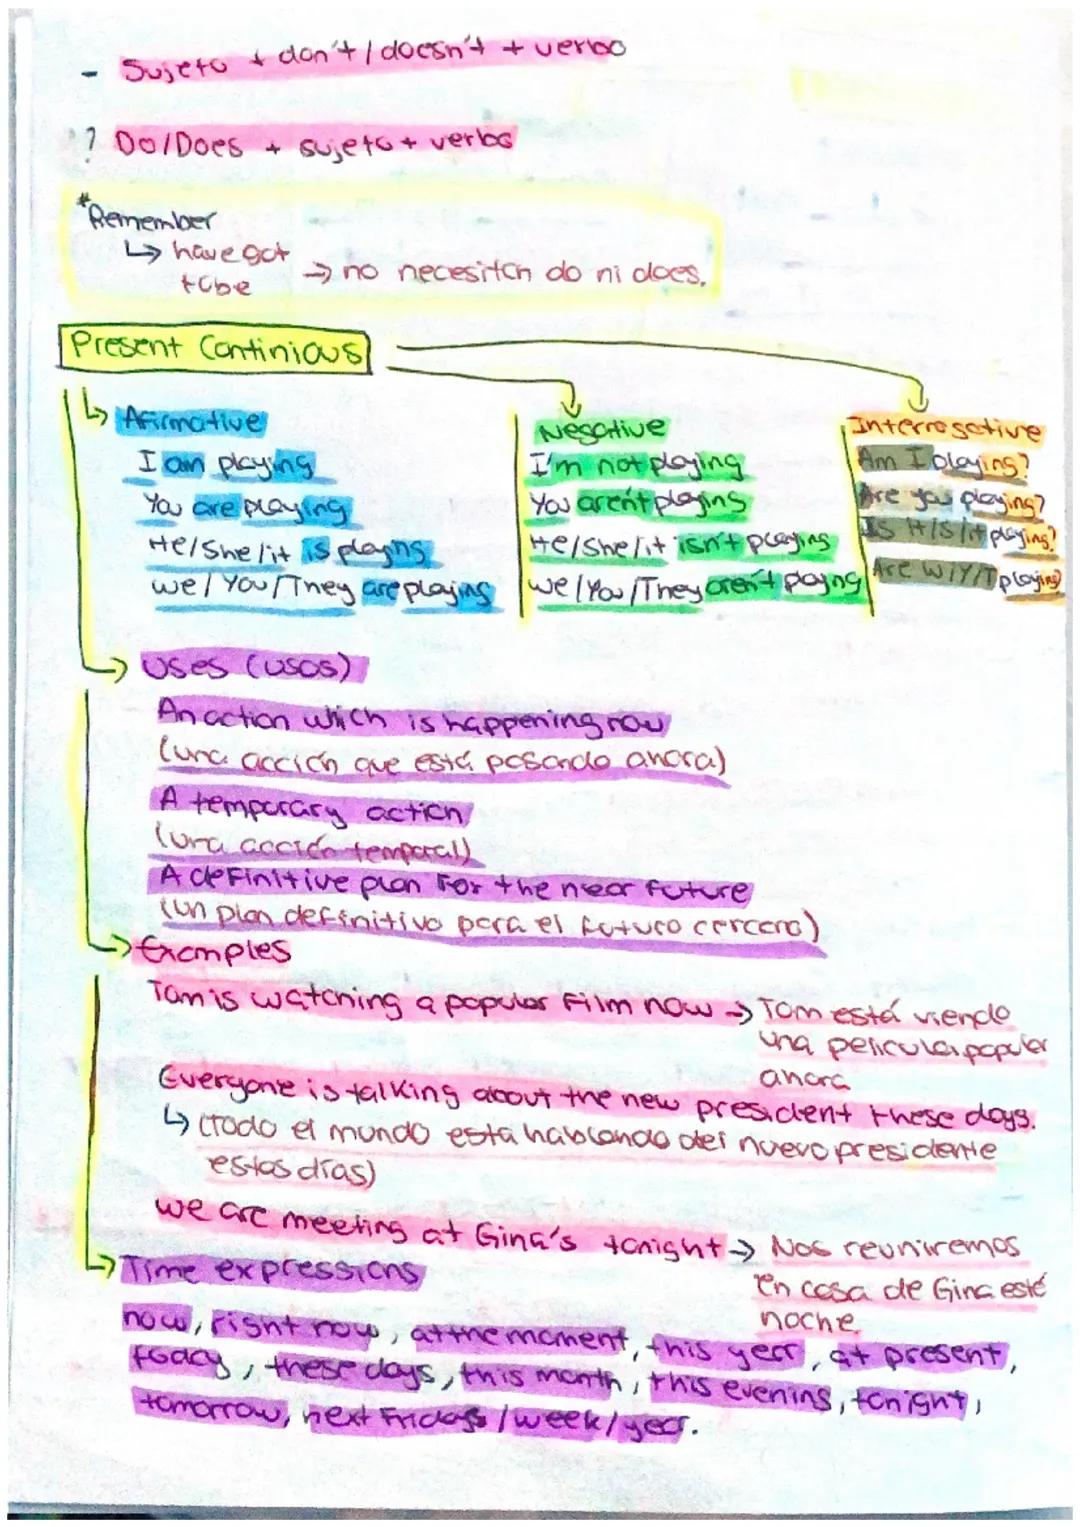 - Sujeto + don't / doesn't + verbo
? Do/Does + sujeto + verbo
*Remember
↳ have got
tobe → no necesitan do ni does.
Present Continious
↳ Afirmative
I am playing
You are playing
He/She/it is playing
We/You/They are playing
Negative
I'm not playing
You aren't playing
He/She/it isn't playing
We/You/They aren't playng
Interrogative
Am I playing?
Are you playing?
Is H/S/it playing?
Are W/Y/T playing?
→ Uses (usos)
An action which is happening now
(una acción que está pasando ahora)
A temporary action
(una acción temporal)
A definitive plan for the near future
(un plan definitivo para el futuro cercano)
→ Examples
Tom is watching a popular Film now → Tom está viendo
una pelicula popular
ahora
Everyone is talking about the new president these days.
↳ (Todo el mundo esta hablando del nuevo presidente
estos días)
We are meeting at Gina's tonight → Nos reuniremos
en casa de Gina esté
noche.
→ Time expressions
now, right now, at the moment, this year, at present,
today, these days, this month, this evening, tonight,
tomorrow, next Fridays / week / year.